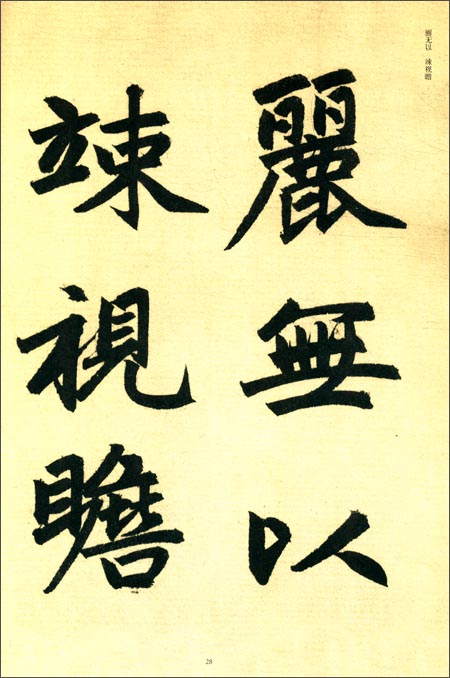 丽无以 竦视瞻
麗無以
竦視瞻
28